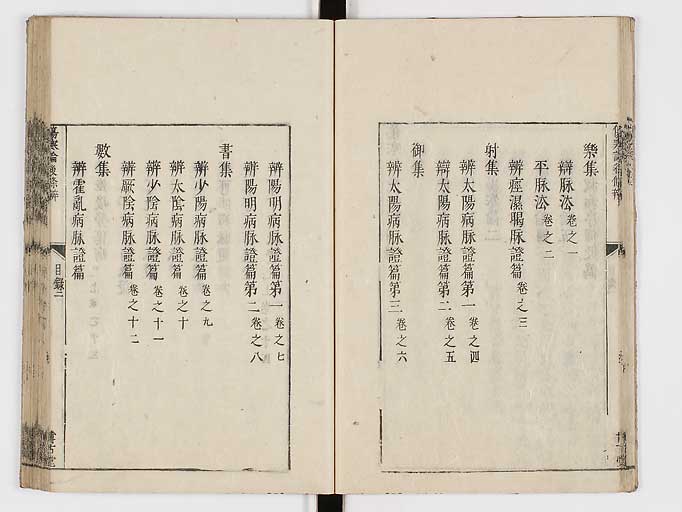 樂集
辯脉法 卷之一
平脉法 卷之二
辨痙濕暍脉證篇 卷之三
射集
辨太陽病脉證篇第一 卷之四
辯太陽病脉證篇第二 卷之五
御集
辨太陽病脉證篇第三 卷之六
辨陽明病脉證篇第一 卷之七
辨陽明病脉證篇第二 卷之八
書集
辨少陽病脉證篇 卷之九
辨太陰病脉證篇 卷之十
辨少陰病脉證篇 卷之十一
辨厥陰病脉證篇 卷之十二
數集
辨霍亂病脉證篇
目錄二